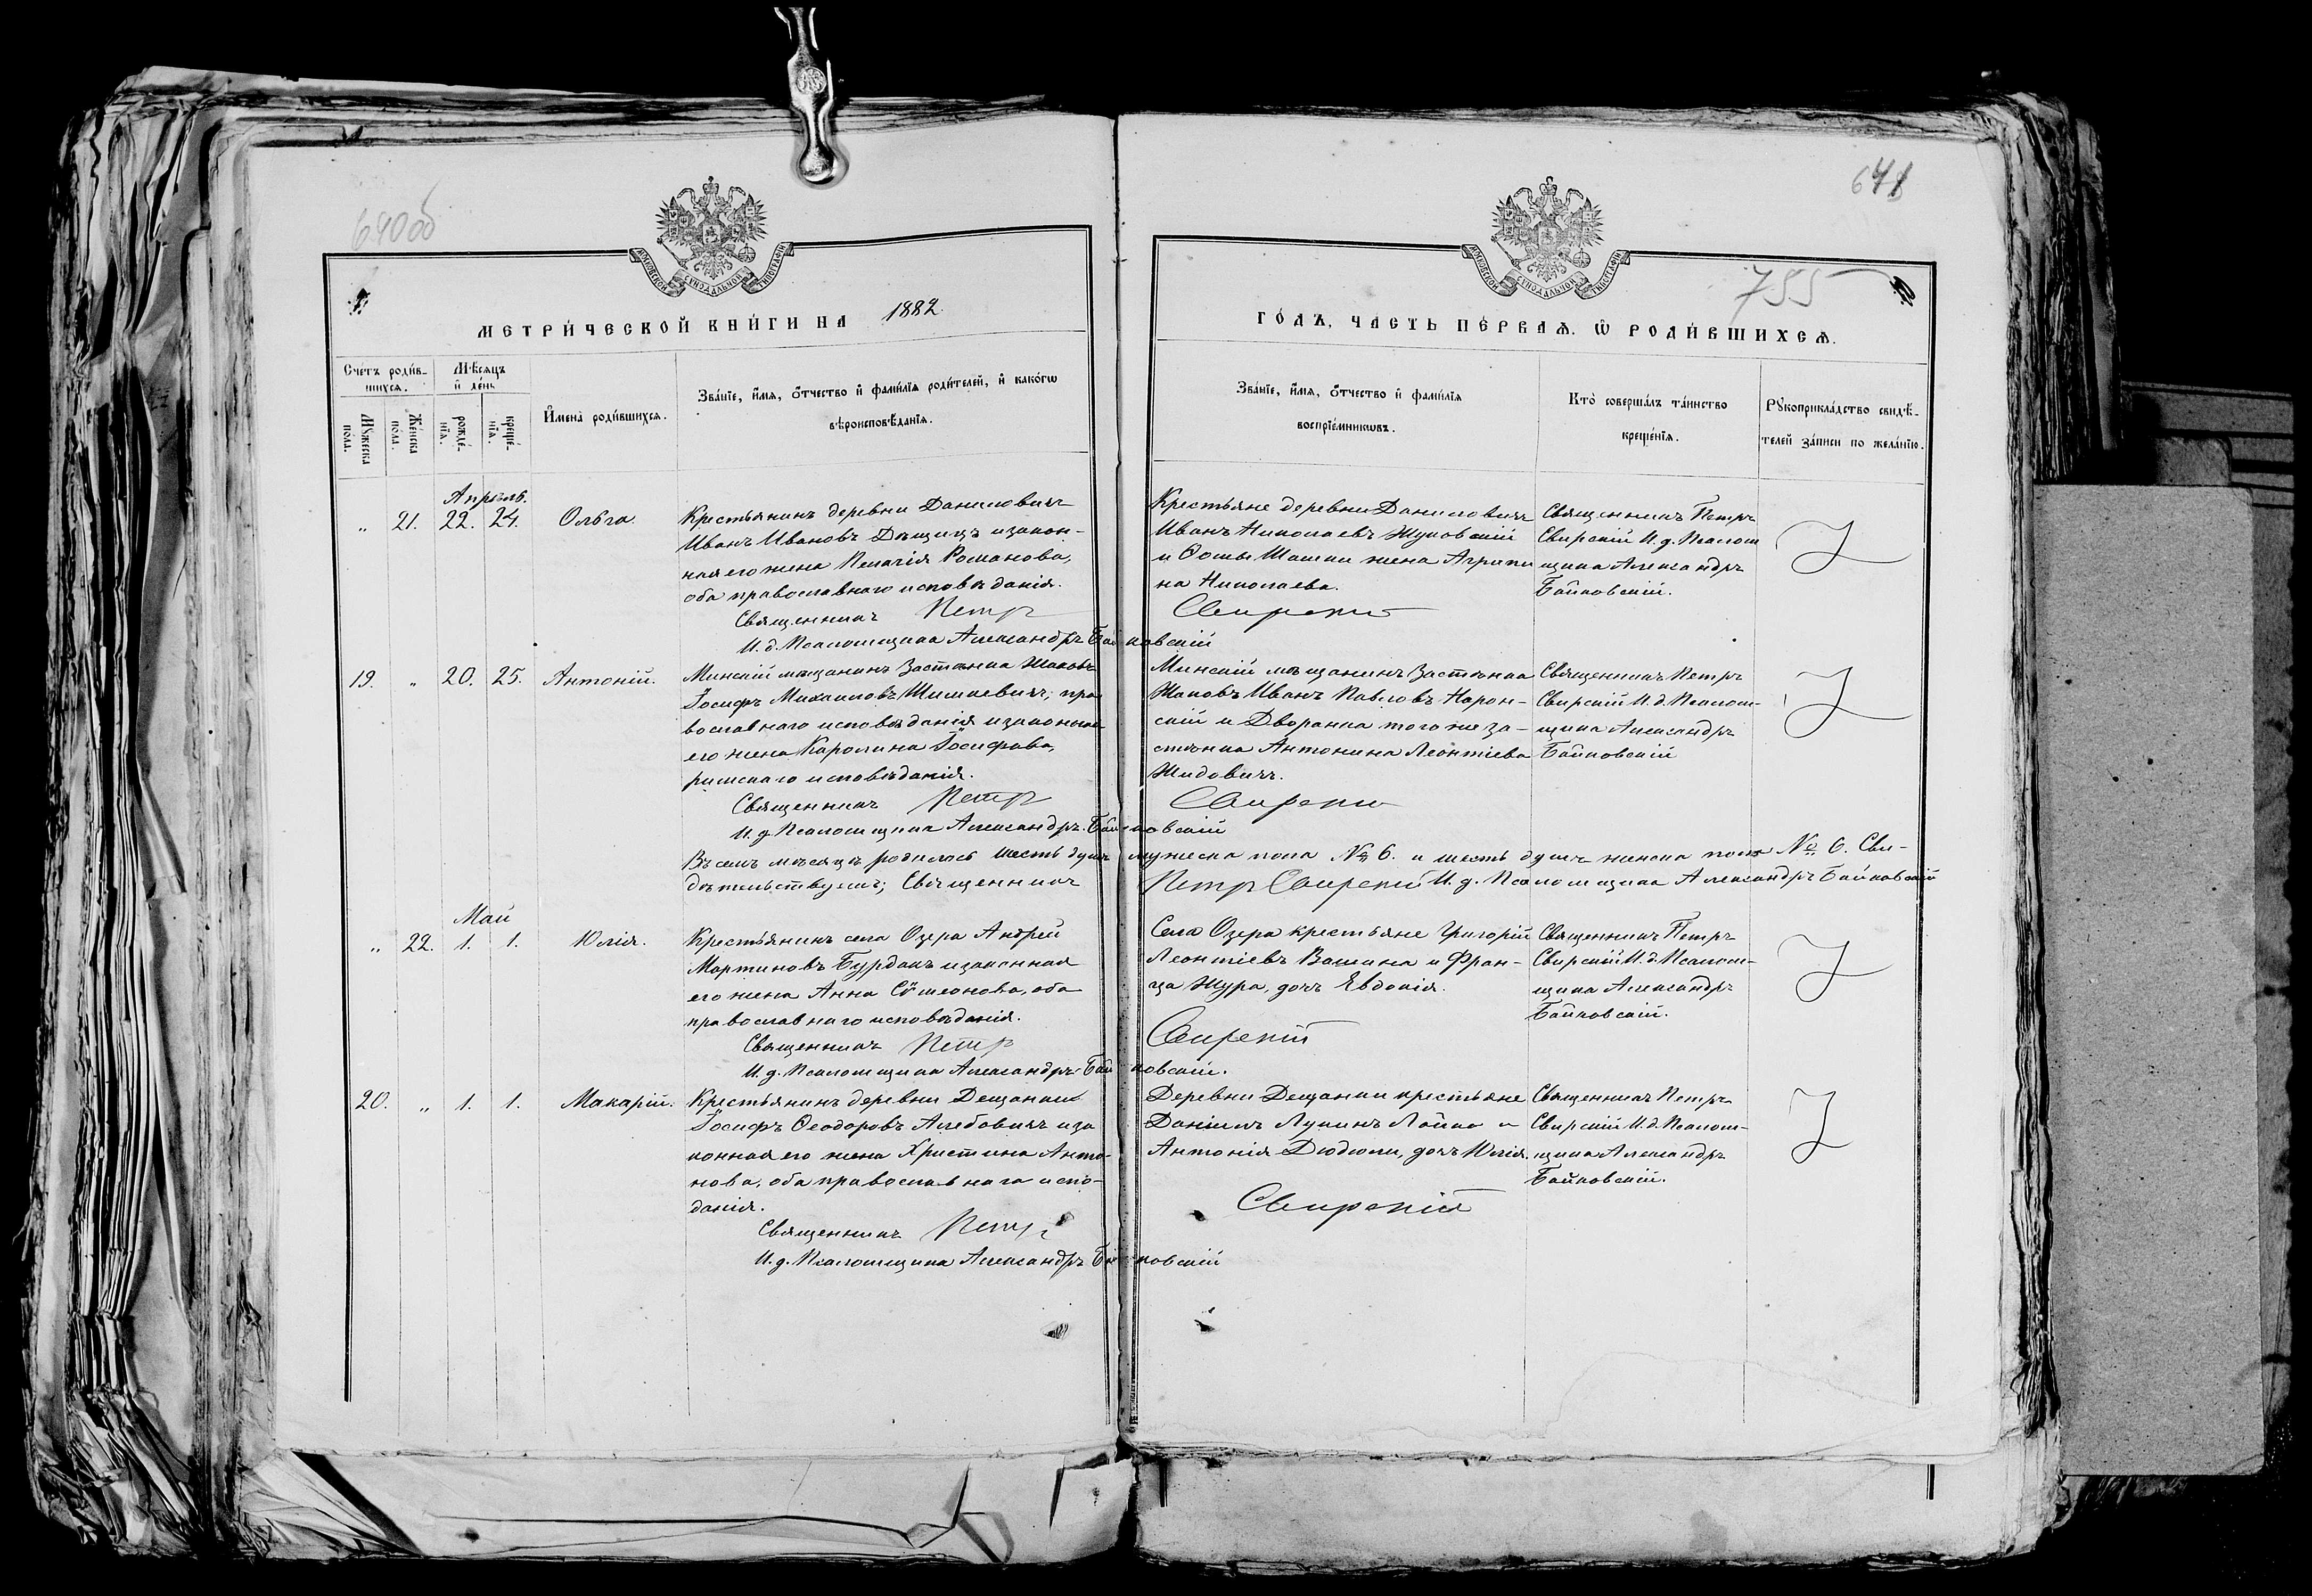 640об
641
755
МОСКОВСКОЙ СУНОДАЛЬНОЙ ТИПОГРАФІИ
МОСКОВСКОЙ СУНОДАЛЬНОЙ ТИПОГРАФІИ
МЕТРИ́ЧЕСКОЙ КНИ́ГИ НА 1882
ГО́ДЪ, ЧА́СТЬ ПЕ́РВАЯ. Ѡ РОДИ́ВШИХСЯ.
Сче́тъ роди́в-
шихся.
Мѣ́сяцъ
и҆ де́нь
Мꙋ́жеска
по́ла.
Же́нска
по́ла.
рожде́-
нїѧ.
креще́-
нїѧ.
И҆мена̀ роди́вшихся.
Зва́нїе, и҆́мя, ѻ҆́тчество и҆ фами́лїя роди́телей, и҆ како́гѡ
вѣроисповѣ́данїя.
Зва́нїе, и҆́мя, ѻ҆́тчество и҆ фами́лїя
воспрїе́мникѡвъ.
Кто̀ соверша́лъ та́инство
креще́нїя.
Рꙋкоприкла́дство свидѣ́-
телей за́писи по жела́нїю.
Апрѣль.
„ 21. 22. 24. Ольга.
Крестьянинъ деревни Даниловичъ
Иванъ Ивановъ Дѣщицъ и закон-
ная его жена Пелагія Романова,
оба православнаго исповѣданія.
Священникъ Петр
И. д. Псаломщика Александръ Байковскій
Крестьяне деревни Даниловичъ
Иванъ Николаевъ Жуковскій
и Ѳомы Шашки жена Агрипи
на Николаева.
Свирскій
Священникъ Петръ
Свирскій И. д. Псалом
щика Александръ
Байковскій.
19. „ 20. 25. Антоній.
Минскій мѣщанинъ Застѣнка Жаковъ
Іосифъ Михаиловъ Шишкевичъ, пра
вославнаго исповѣданія и законная
его жена Каролина Іосифова,
римскаго исповѣданія.
Священникъ Петр
И. д. Псаломщика Александръ Байковскій
Минскій мѣщанинъ Застѣнка
Жаковъ Иванъ Павловъ Нарон-
скій и Дворянка того же за-
стѣнка Антонина Леонтіева
Жидовичъ.
Свирскій
Священникъ Петръ
Свирскій И. д. Псалом-
щика Александръ
Байковскій
Въ семъ мѣсяцѣ родилось шесть душъ мужеска пола № 6. и шесть душъ женска пола № 6. Сви-
дѣтельствуемъ; Священникъ Петр Свирскій И. д. Псаломщика Александръ Байковскій
Май
„ 22. 1. 1. Юлія.
Крестьянинъ села Озера Андрей
Мартиновъ Бурдакъ и законная
его жена Анна Сѵмеонова, оба
православнаго исповѣданія.
Священникъ Петр
И. д. Псаломщика Александръ Байковскій.
Села Озера крестьяне Григорій
Леонтіевъ Вашина и Фран-
ца Жура, дочь Евдокія.
Свирскій
Священникъ Петръ
Свирскій И. д. Псалом-
щика Александръ
Байковскій.
20. „ 1. 1. Макарій.
Крестьянинъ деревни Дещанки
Іосифъ Ѳеодоровъ Алебовичъ и за
конная его жена Христина Анто-
нова, оба православнаго испо-
данія.
Священникъ Петр
И. д. Псаломщика Александръ Байковскій
Деревни Дещанки крестьяне
Даніилъ Лукинъ Лойка и
Антонія Дюдюли, дочь Юлія.
Свирскій
Священникъ Петръ
Свирскій И. д. Псалом-
щика Александръ
Байковскій.